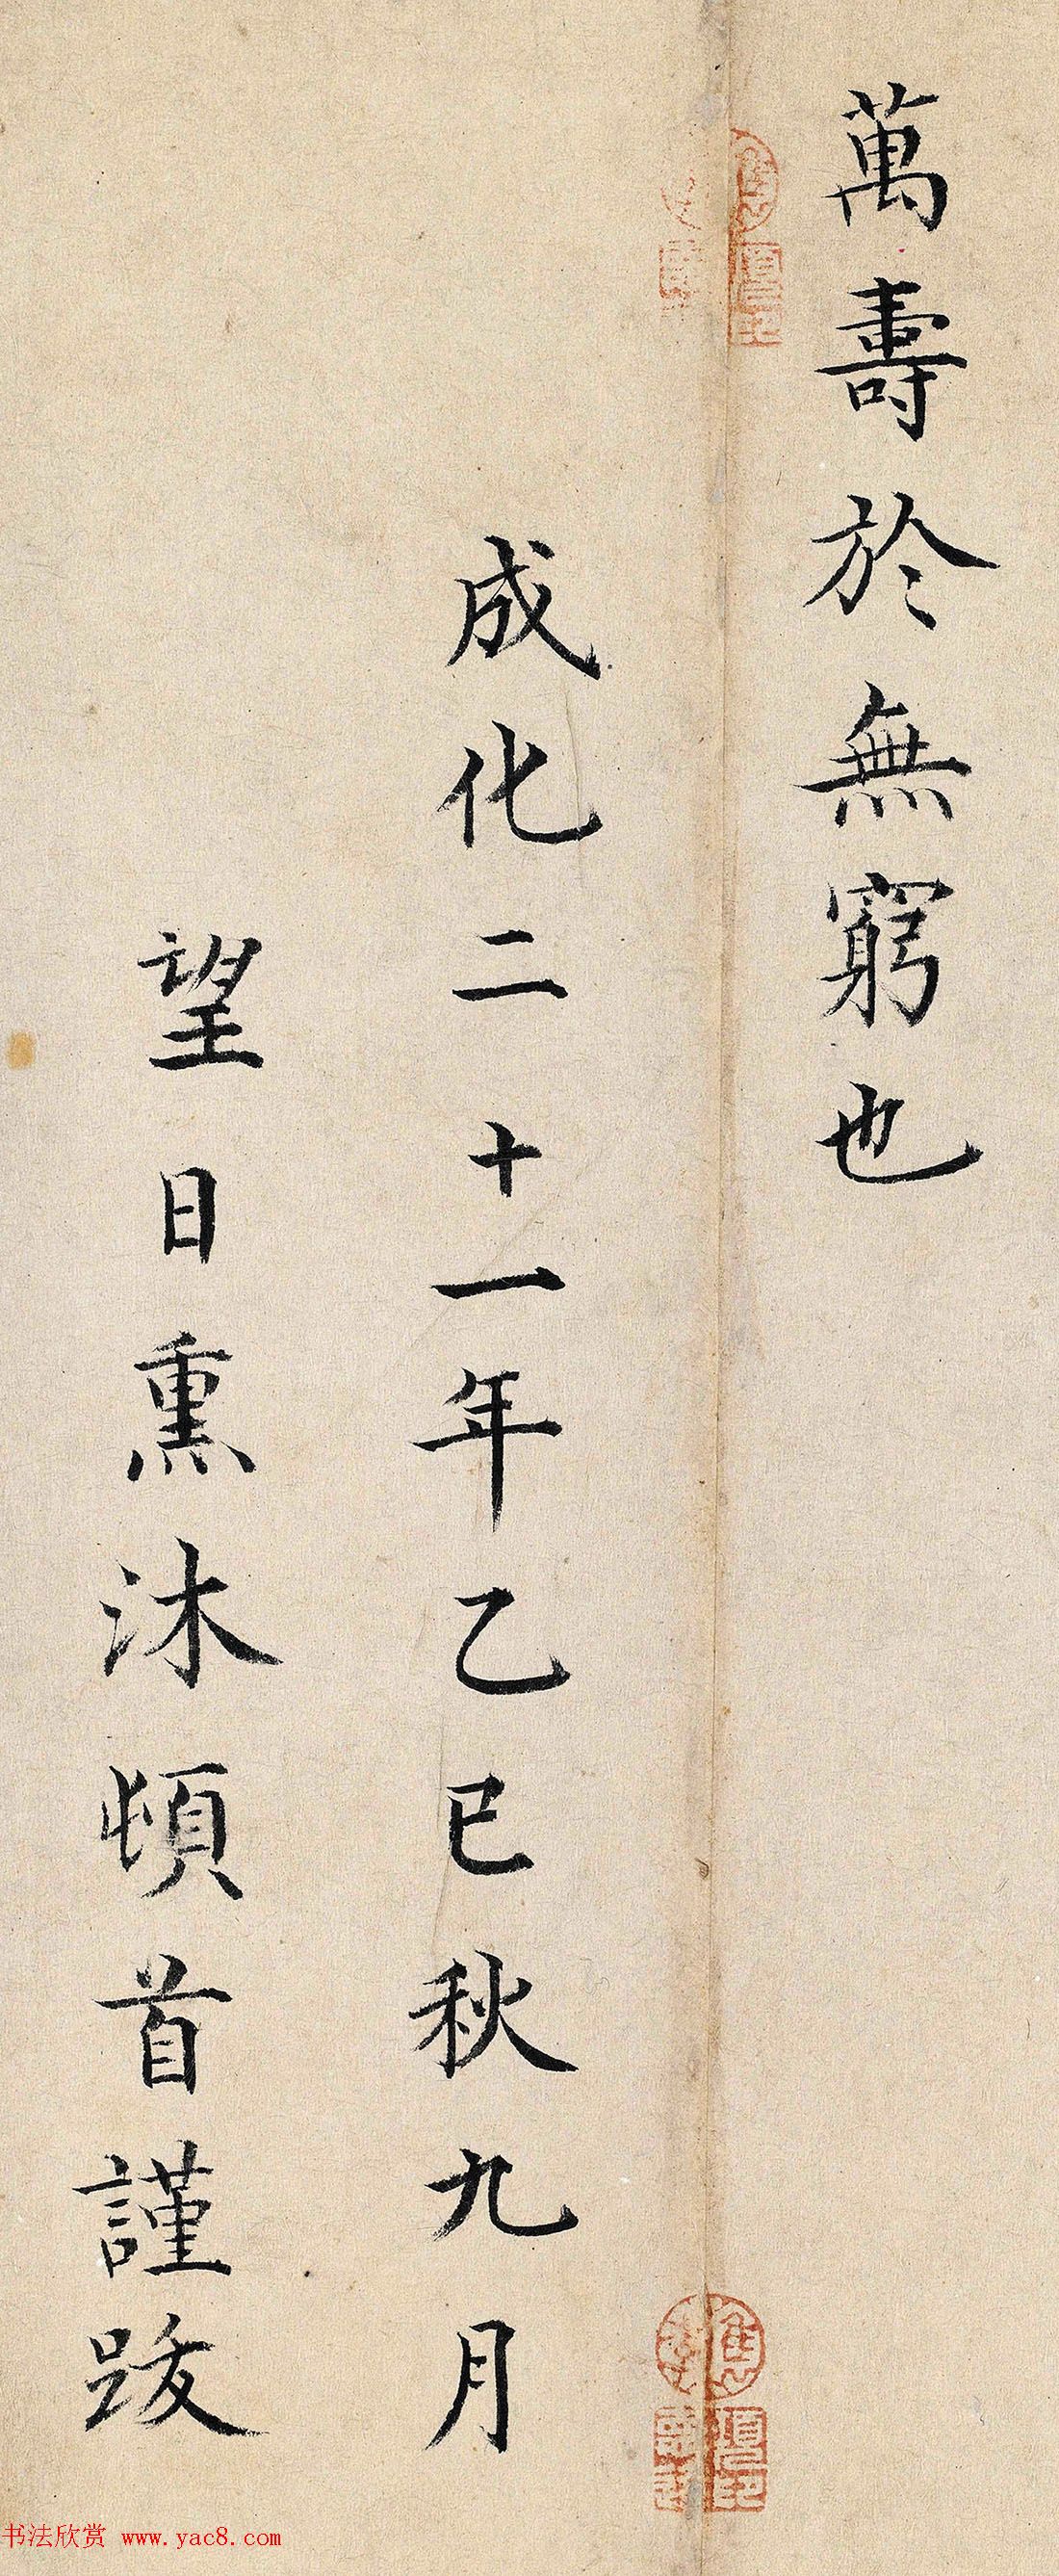 萬壽於無窮也
成化二十一年乙巳秋九月
望日熏沐頓首謹跋
书法欣赏 www.yac8.com